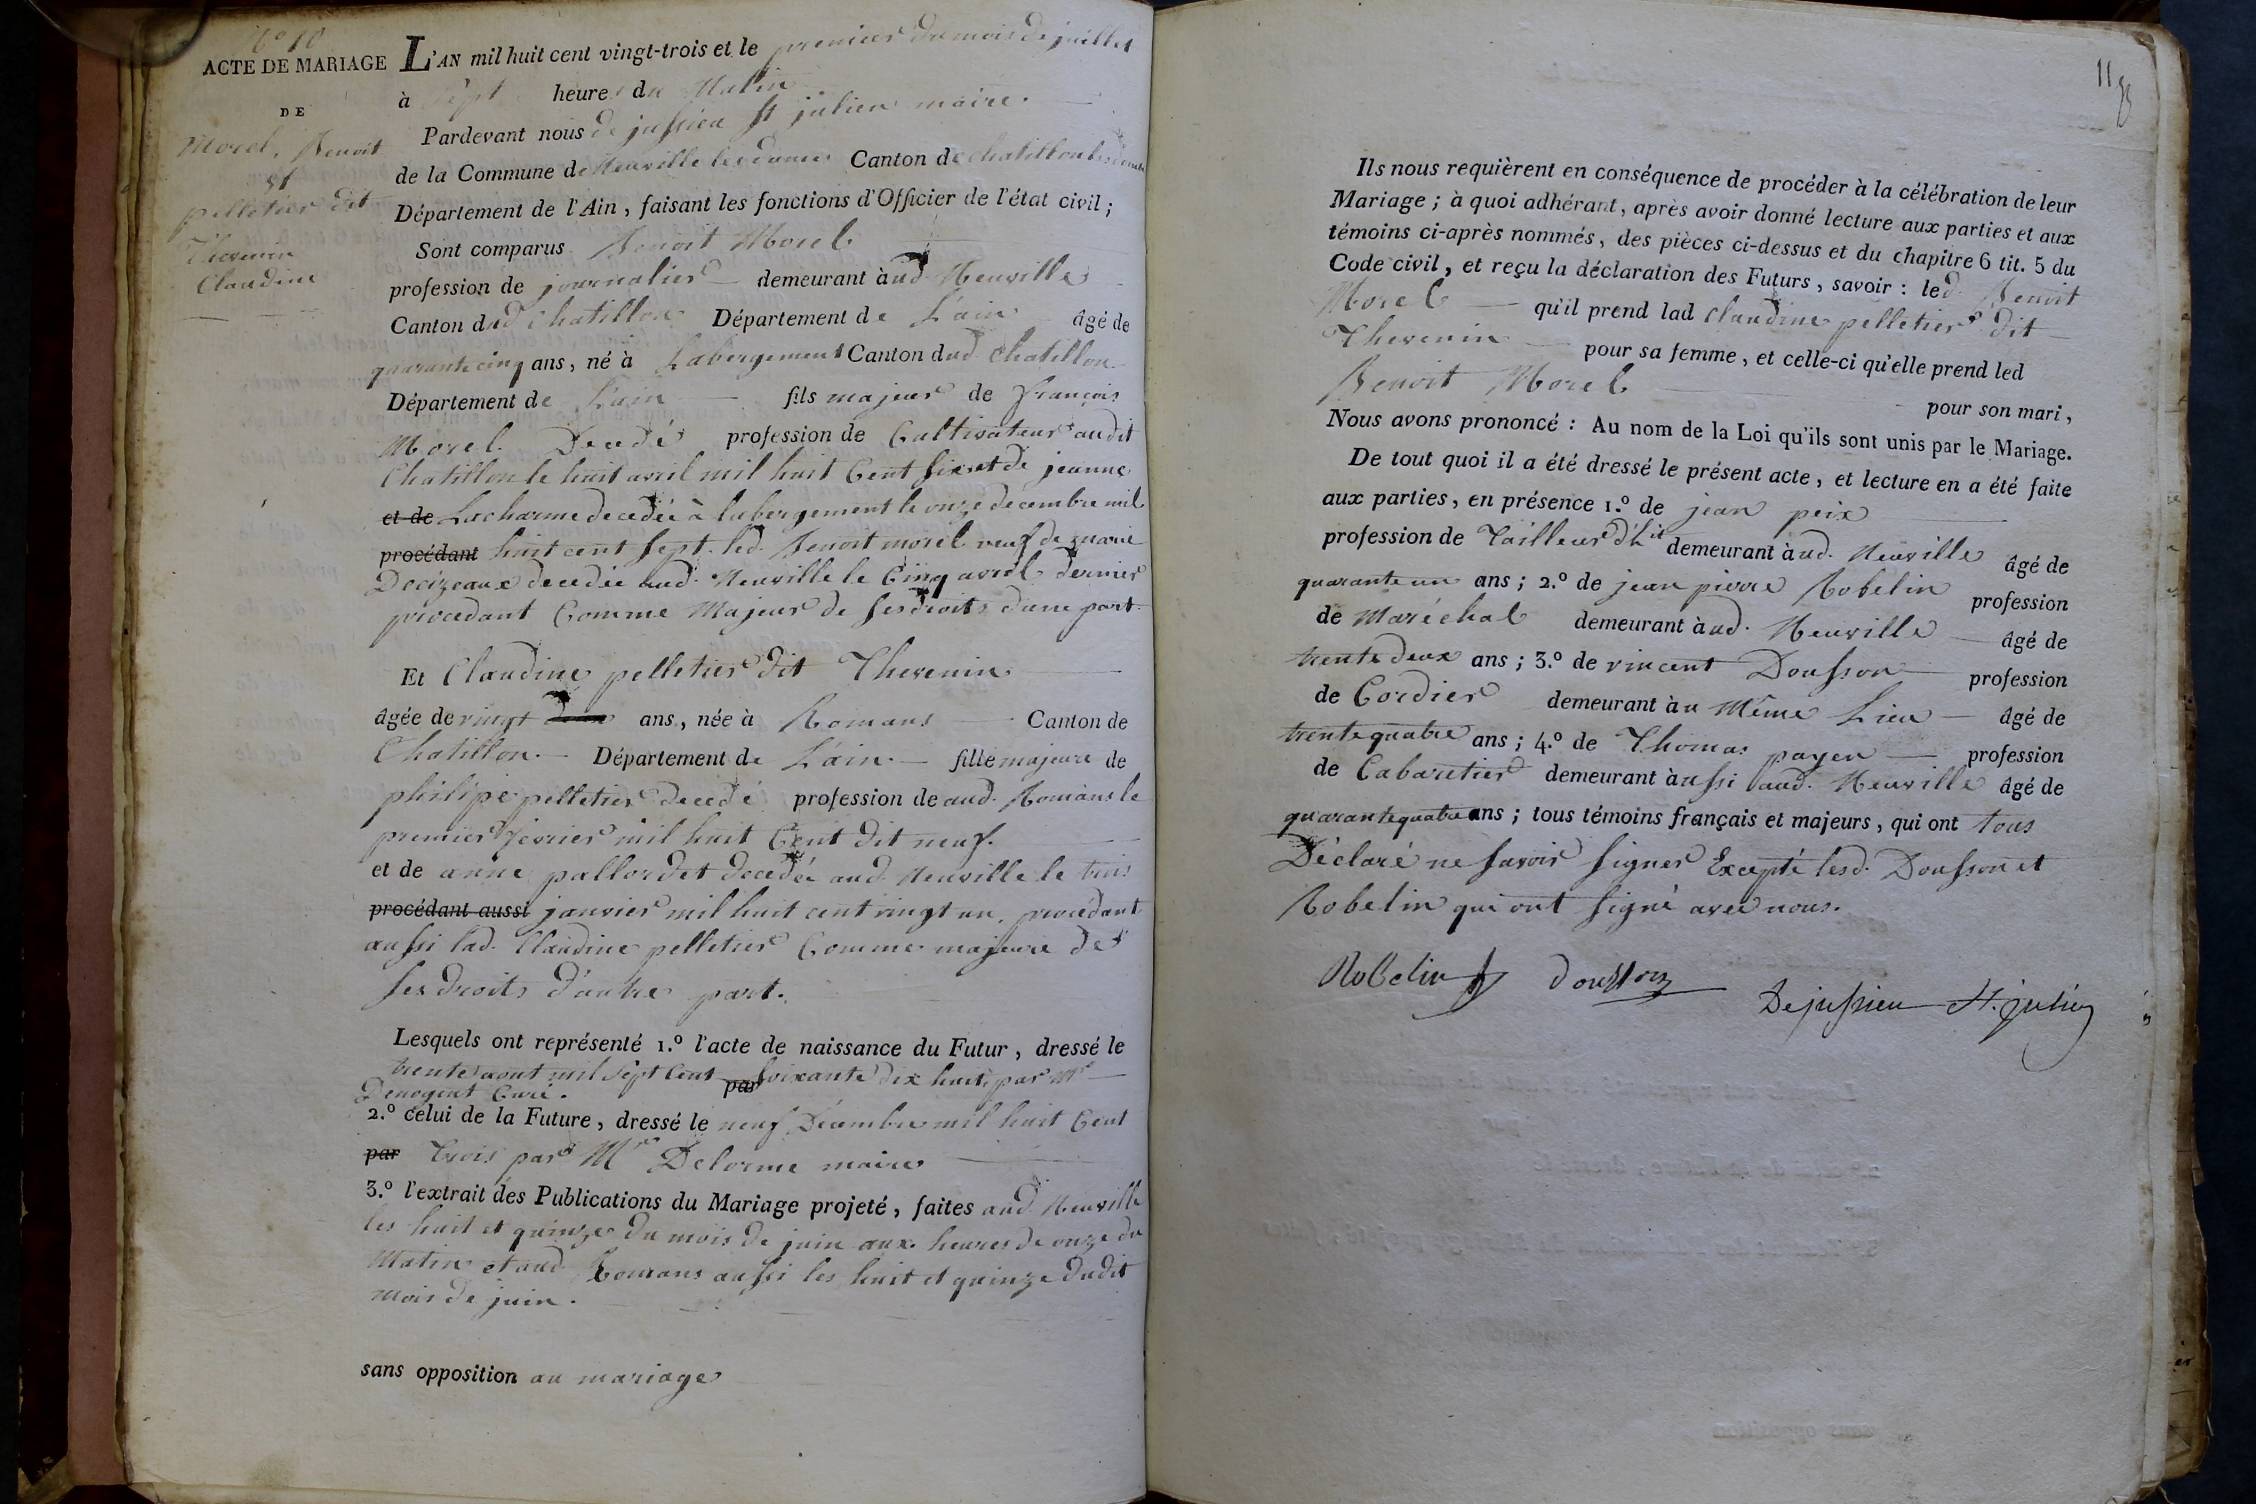 N° 10
ACTE DE MARIAGE
DE
Morel, Benoit
et
pelletier dit
Thevenin
Claudine
L'AN mil huit cent vingt-trois et le premier du mois de juillet
à sept heures du Matin
Pardevant nous de jussieu St julien maire.
de la Commune de Neuville les dames Canton de chatillon les dombes
Département de l'Ain, faisant les fonctions d'Officier de l'état civil;
Sont comparus Benoit Morel
profession de journalier demeurant àud. Neuville
Canton dud Chatillon Département de L'ain âgé de
quarante cinq ans, né à Labergement Canton dud. Chatillon
Département de L'ain fils majeur de françois
Morel. Decedé profession de Cultivateur audit
Chatillon le huit avril mil huit Cent six et de jeanne
et de Lacharme decedée à labergement le onze decembre mil
procédant huit cent sept. led. Benoit morel veuf de marie
Decizeaux decedée aud. Neuville le Cinq avril dernier
procedant Comme Majeur de ses droits d'une part.
Et Claudine pelletier dit Thevenin
âgée de vingt ans, née à Romans Canton de
Chatillon. Département de L'ain. fille majeure de
philipe pelletier decedé profession de aud. Romans le
premier fevrier mil huit Cent dit neuf.
et de anne pallordet decedée aud. Neuville le trois
procédant aussi janvier mil huit cent vingt un. procedant
aussi lad. Claudine pelletier Comme majeure de
ses droits d'autre part.
Lesquels ont représenté 1.º l'acte de naissance du Futur, dressé le
trente aout mil sept Cent par soixante dix huit, par Mr
Denogent Curé.
2.º celui de la Future, dressé le neuf Décembre mil huit Cent
par Trois par Mr Delorme maire
3.º l'extrait des Publications du Mariage projeté, faites aud. Neuville
les huit et quinze du mois de juin aux heures de onze du
Matin et aud. Romans aussi les huit et quinze dudit
mois de juin.
sans opposition au mariage
11
Ils nous requièrent en conséquence de procéder à la célébration de leur
Mariage; à quoi adhérant, après avoir donné lecture aux parties et aux
témoins ci-après nommés, des pièces ci-dessus et du chapitre 6 tit. 5 du
Code civil, et reçu la déclaration des Futurs, savoir: led. Benoit
Morel qu'il prend lad Claudine pelletier dit
Thevenin pour sa femme, et celle-ci qu'elle prend led
Benoit Morel pour son mari,
Nous avons prononcé: Au nom de la Loi qu'ils sont unis par le Mariage.
De tout quoi il a été dressé le présent acte, et lecture en a été faite
aux parties, en présence 1.º de jean peix
profession de Tailleur d'h.it demeurant àud. Neuville âgé de
quarante un ans; 2.º de jean pierre Robelin profession
de Maréchal demeurant àud. Neuville âgé de
trente deux ans; 3.º de vincent Dousson profession
de Cordier demeurant àu Même Lieu âgé de
trente quatre ans; 4.º de Thomas payen profession
de Cabaretier demeurant àussi aud. Neuville âgé de
quarante quatre ans; tous témoins français et majeurs, qui ont tous
Déclaré ne savoir signer Excepté lesd. Dousson et
Robelin qui ont signé avec nous.
Robelin dousson
Dejussieu St. julien